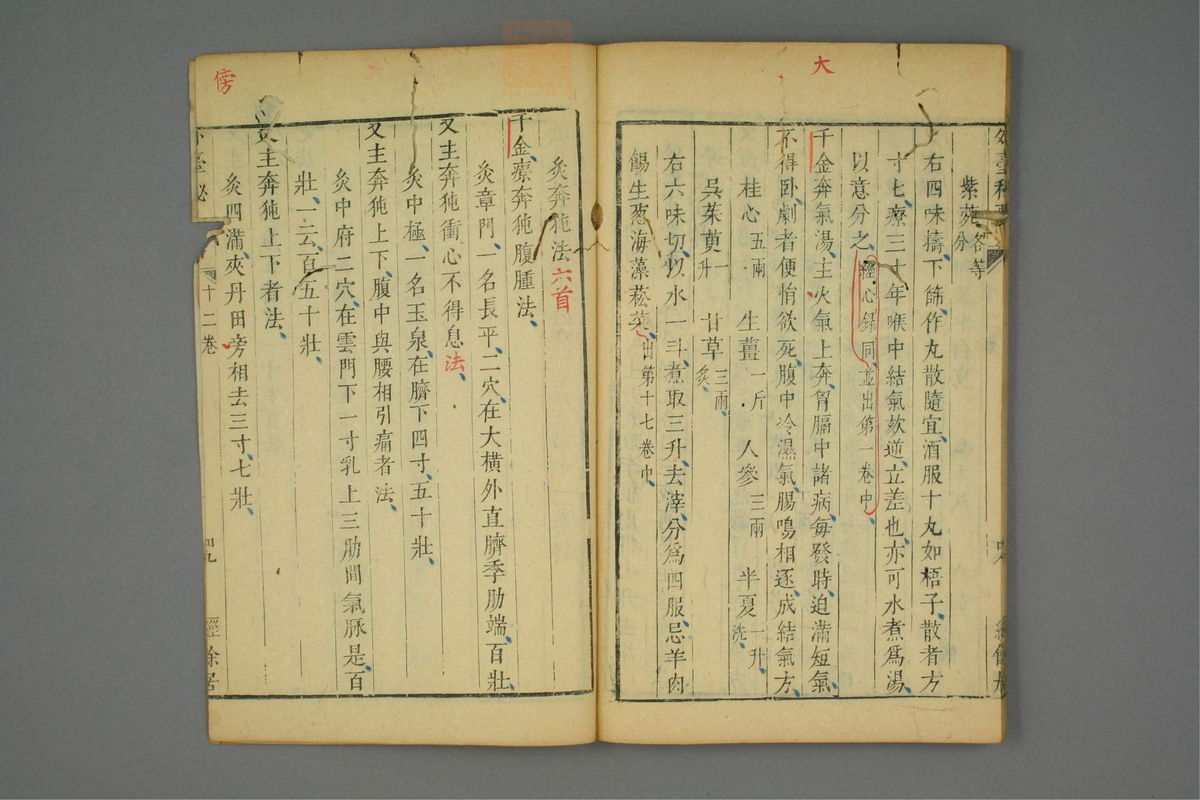 大
紫菀各等分
右四味擣下篩作丸散隨宜酒服十丸如梧子散者方
寸七療三十年喉中結氣欬逆立差也亦可水煮爲湯
以意分之經心録同並出第一卷中
千金奔氣湯主火氣上奔胷膈中諸病每發時迫滿短氣
不得卧劇者便悁欲死腹中冷濕氣腸鳴相逐成結氣方
桂心五兩 生薑一斤 人參三兩 半夏一升洗
吳茱萸一升 甘草三兩炙
右六味切以水一斗煮取三升去滓分爲四服忌羊肉
餳生葱海藻菘菜出第十七卷中
灸奔㹠法六首
千金療奔㹠腹腫法
灸章門一名長平二穴在大橫外直臍季肋端百壯
又主奔㹠衝心不得息法
灸中極一名玉泉在臍下四寸五十壯
又主奔㹠上下腹中與腰相引痛者法
灸中府二穴在雲門下一寸乳上三肋間氣脉是百
壯一云百五十壯
又主奔㹠上下者法
灸四滿夾丹田旁相去三寸七壯
臺秘
十二卷
四九
經餘居
傍